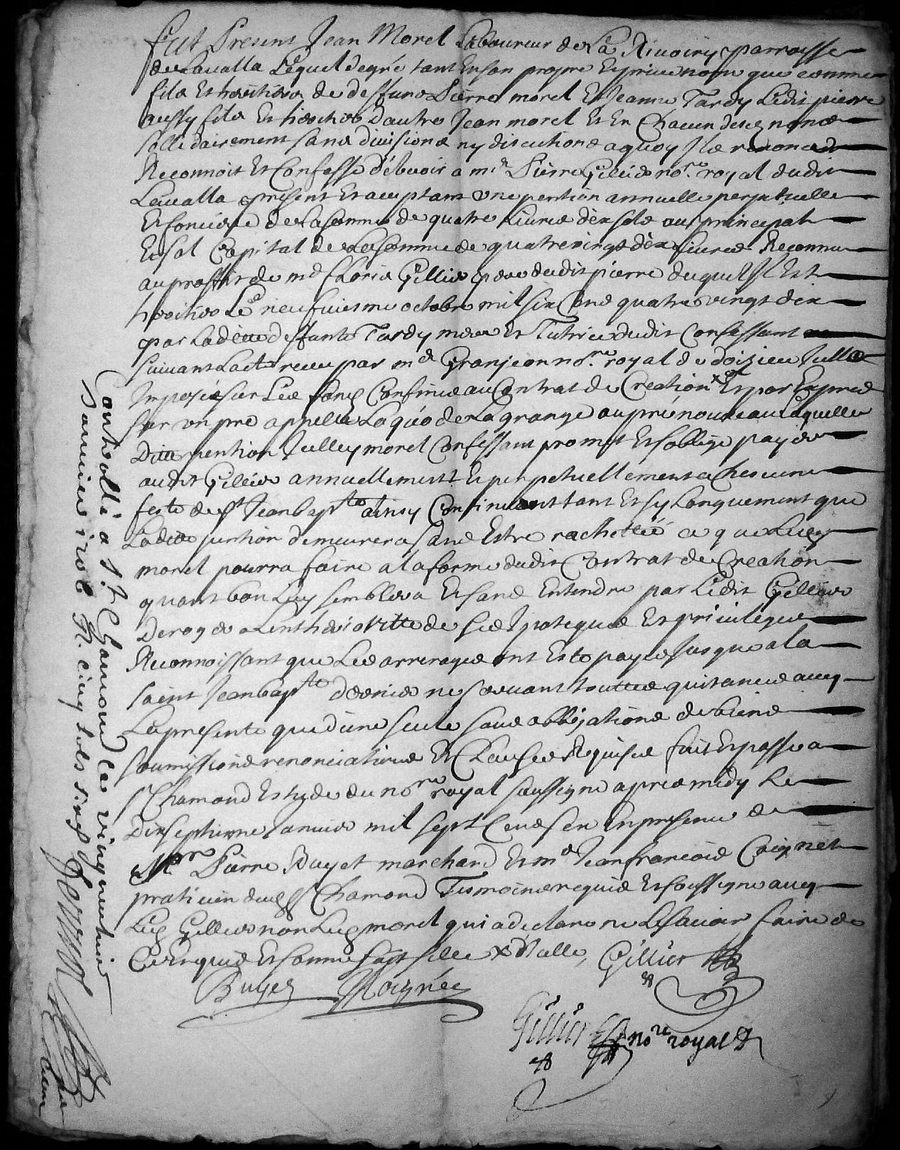 fut present Jean Morel Laboureur de La Rivoiry parroisse
de Lavalla Lequel de gré tant en son propre et privé nom que comme
fils et heritier de deffunt Pierre morel et Jeanne Tardy Ledit pierre
aussy fils et heritier d'autre Jean morel et en Chacun desd noms
sollidairement sans divisions ny discutions a quoy Il a renoncé
Reconnoit et Confesse debvoir a mr Pierre Gillier nore royal dudit
Lavalla present et acceptant une pention annuelle perpetuelle
et fonciere de La somme de quatre Livres dix sols au principal
et sol Capital de La somme de quatre vingt dix Livres Reconnu
au proffit de me Gillier pere dudit pierre duquel Il est
heritier Le neufuiesme octobre mil six Cens quatre vingt dix
par Laditte deffunte Tardy mere et Tutrice dudit Confessant
suivant L'acte receu par me Granjeon nore royal de doisieu Jcelle
Imposée sur Les fonds Confinés au Contrat de Creation et par Exprès
sur un pré appellé de La grange au pré nouveau Laquelle
ditte pention Jcelluy morel Confessant promet et s'oblige payer
audit Gillier annuellement et perpetuellement a Chacune
feste de st Jean Bapte ainsy Continuer tant et sy Longuement que
Ladite pention demeurera sans Estre rachettée ce que Led
morel pourra faire a la forme dudit Contrat de Creation
quant bon Luy semblera Et sans Entendre par Ledit Gillier
deroger a Lantherioritté de ses Ipoteques et privileges
Reconnoissant que Les arrerages ont esté payés Jusque a la
saint Jean bapte derniere ne servant touttes quitances avec
La presente que d'une seule sous obligations de biens
soumissions renonciations et Clauses Requises fait et passé a
st Chamond Estude du nore royal soussigné apres midy Le
dix septieme Janvier mil sept Cens six En presence de
Pierre Buyet marchand et me Jean francois Coignet
praticien dud st Chamond Tesmoins requis et soussignés avec
Led Gillier non Led morel qui a declaré ne Le scavoir faire de
Ce requis et sommé
Gillier
Buyet Coignet
Gillier nore royal
Controllé a St Chamond le vingt
Janvier 1706 Rx cinq sols